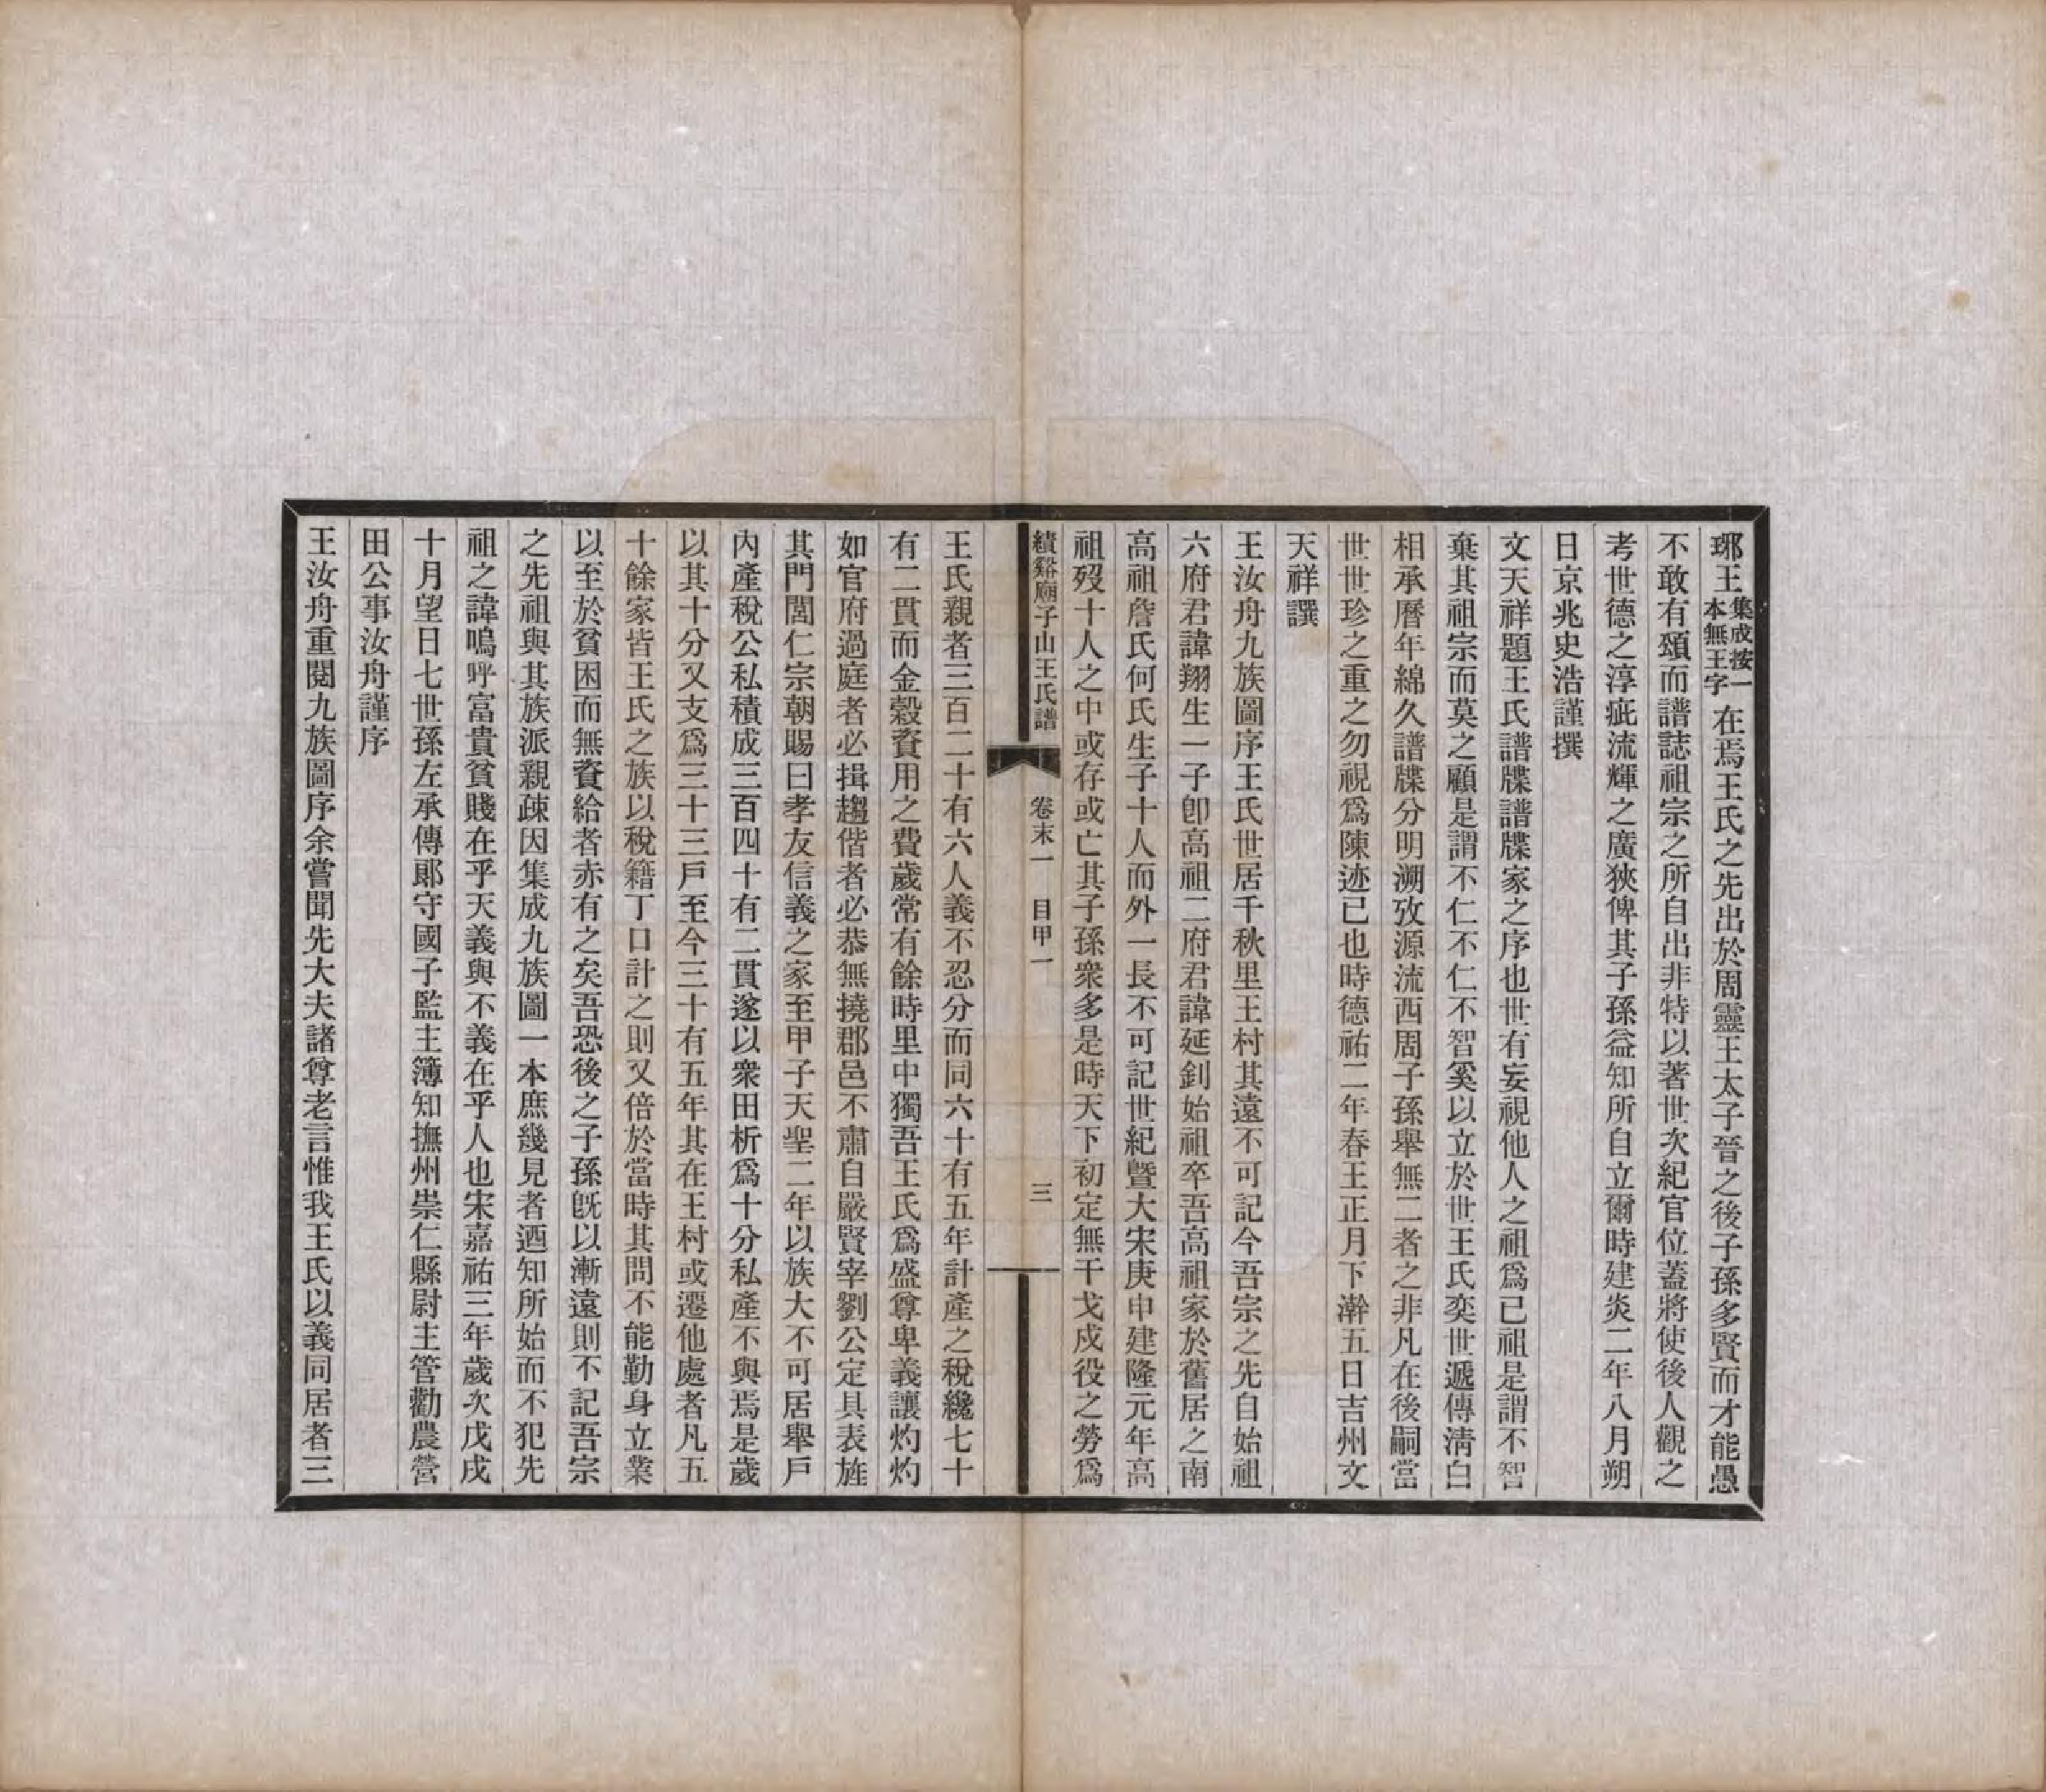 琊王集成按一本無王字在焉王氏之先出於周靈王太子晉之後子孫多賢而才能愚
不敢有頌而譜誌祖宗之所自出非特以著世次紀官位蓋將使後人觀之
考世德之淳疵流輝之廣狹俾其子孫益知所自立爾時建炎二年八月朔
日京兆史浩謹撰
文天祥題王氏譜牒譜牒家之序也世有妄視他人之祖爲已祖是謂不智
棄其祖宗而莫之顧是謂不仁不仁不智奚以立於世王氏奕世遞傳淸白
相承曆年綿久譜牒分明溯攷源流西周子孫舉無二者之非凡在後嗣當
世世珍之重之勿視爲陳迹已也時德祐二年春王正月下澣五日吉州文
天祥譔
王汝舟九族圖序王氏世居千秋里王村其遠不可記今吾宗之先自始祖
六府君諱翔生一子卽高祖二府君諱延釗始祖卒吾高祖家於舊居之南
高祖詹氏何氏生子十人而外一長不可記世紀曁大宋庚申建隆元年高
祖歿十人之中或存或亡其子孫衆多是時天下初定無干戈戍役之勞爲
績谿廟子山王氏譜 卷末一 目甲一 三
王氏親者三百二十有六人義不忍分而同六十有五年計產之稅纔七十
有二貫而金穀資用之費歲常有餘時里中獨吾王氏爲盛尊卑義讓灼灼
如官府過庭者必揖趨偕者必恭無撓郡邑不肅自嚴賢宰劉公定具表旌
其門閭仁宗朝賜曰孝友信義之家至甲子天聖二年以族大不可居舉戶
內產稅公私積成三百四十有二貫遂以衆田析爲十分私產不與焉是歲
以其十分又支爲三十三戶至今三十有五年其在王村或遷他處者凡五
十餘家皆王氏之族以稅籍丁口計之則又倍於當時其問不能勤身立業
以至於貧困而無資給者赤有之矣吾恐後之子孫旣以漸遠則不記吾宗
之先祖與其族派親疎因集成九族圖一本庶幾見者迺知所始而不犯先
祖之諱嗚呼富貴貧賤在乎天義與不義在乎人也宋嘉祐三年歲次戊戌
十月望日七世孫左承傳郞守國子監主簿知撫州崇仁縣尉主管勸農營
田公事汝舟謹序
王汝舟重閱九族圖序余嘗聞先大夫諸尊老言惟我王氏以義同居者三